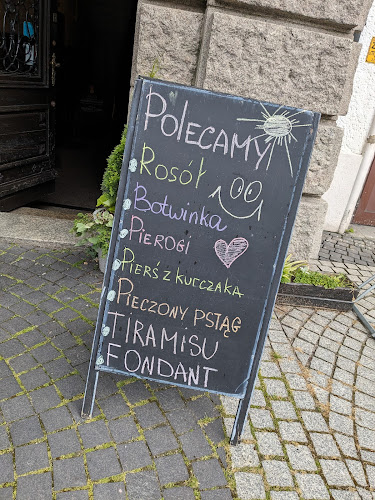 Polecamy
Rosół
Botwinka
Pierogi
Pierś z kurczaka
Pieczony pstąg
Tiramisu
Fondant